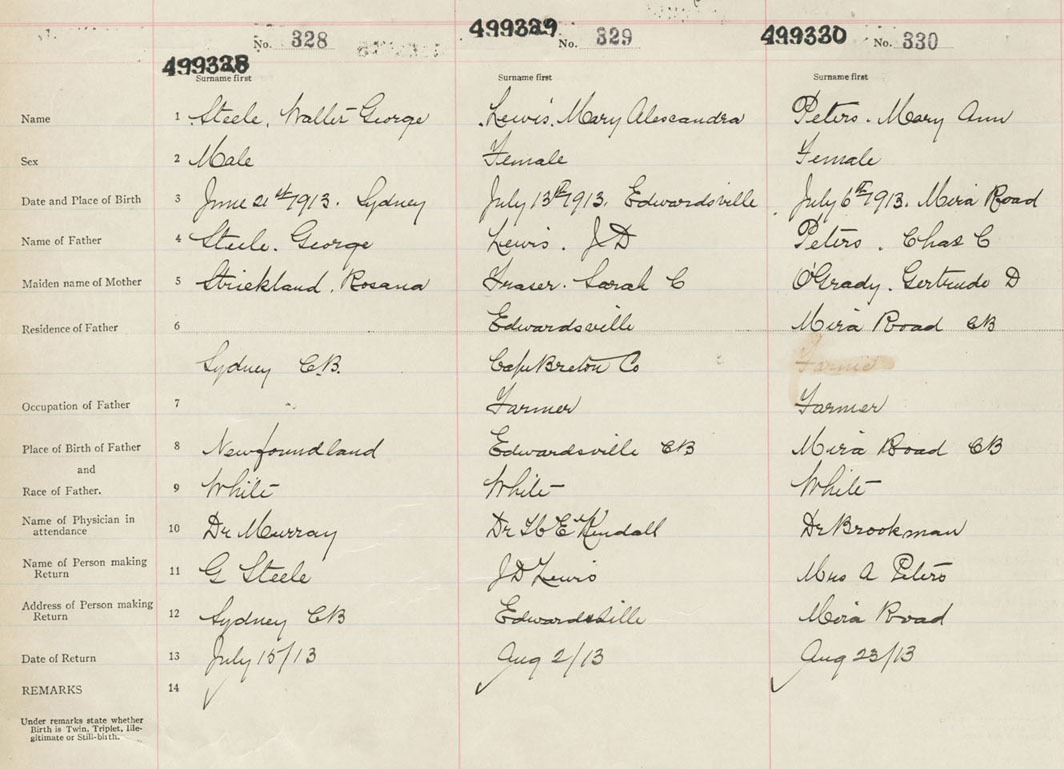 499328 No. 328 499329 No. 329 499330 No. 330
Surname first Surname first Surname first
Name 1 Steele, Walter George Lewis. Mary Alescandra Peters. Mary Ann
Sex 2 Male Female Female
Date and Place of Birth 3 June 21st 1913. Sydney July 13th 1913. Edwardsville July 6th 1913. Mira Road
Name of Father 4 Steele. George Lewis. J D Peters. Chas C
Maiden name of Mother 5 Strickland, Rosana Fraser. Sarah C O'Grady. Gertrude D
Residence of Father 6 Edwardsville Mira Road CB
Sydney C.B. Cape Breton Co Farmer
Occupation of Father 7 Farmer Farmer
Place of Birth of Father 8 Newfoundland Edwardsville CB Mira Road CB
and
Race of Father. 9 White White White
Name of Physician in attendance 10 Dr Murray Dr E Kendall Dr Brookman
Name of Person making Return 11 G Steele J D Lewis Mrs A Peters
Address of Person making Return 12 Sydney CB Edwardsville Mira Road
Date of Return 13 July 15/13 Aug 2/13 Aug 23/13
REMARKS 14
Under remarks state whether
Birth is Twin, Triplet, Ille-
gitimate or Still-birth.